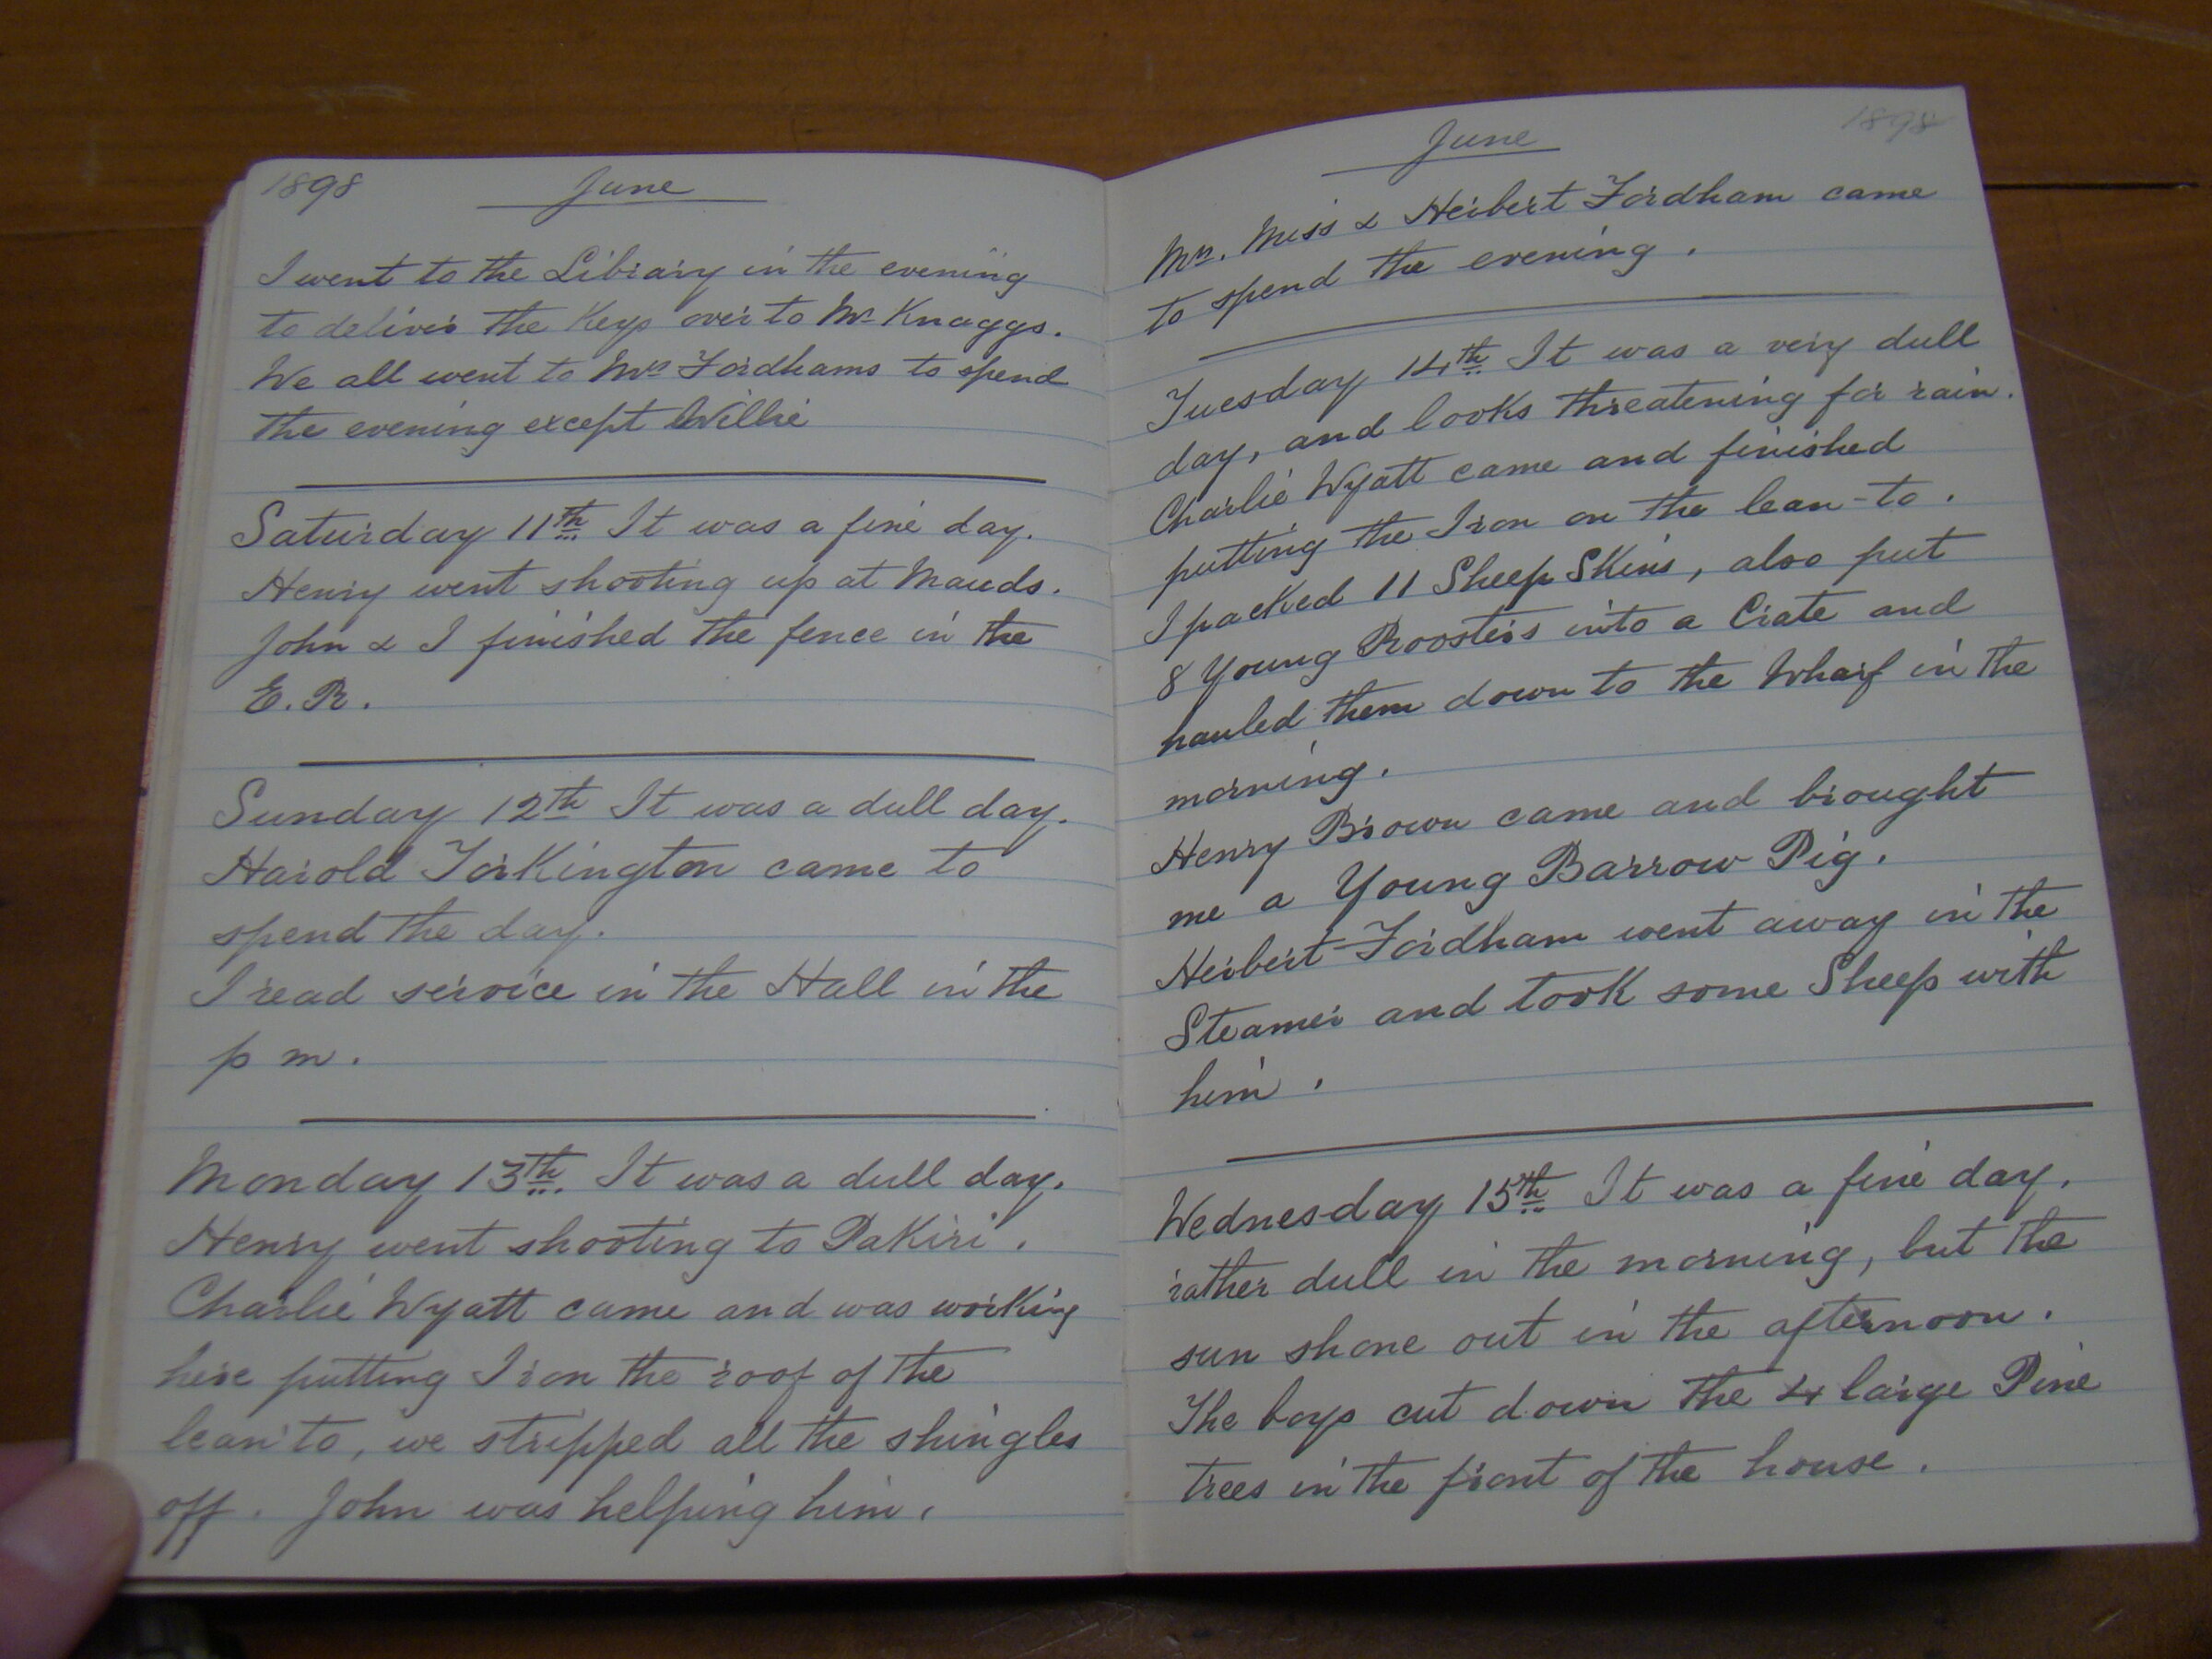 1898 June
I went to the Library in the evening
to deliver the Keys over to Mr Knaggs.
We all went to Mrs Fordhams to spend
the evening except Willie
Saturday 11th It was a fine day.
Henry went shooting up at Mauds.
John & I finished the fence in the
E. R.
Sunday 12th It was a dull day.
Harold Torkington came to
spend the day.
I read service in the Hall in the
p m.
Monday 13th. It was a dull day.
Henry went shooting to Pakiri.
Charlie Wyatt came and was working
here putting Iron the roof of the
lean to, we stripped all the shingles
off. John was helping him.
June 1898
Mrs. Miss & Herbert Fordham came
to spend the evening.
Tuesday 14th It was a very dull
day, and looks threatening for rain.
Charlie Wyatt came and finished
putting the Iron on the lean-to.
I packed 11 Sheep Skins, also put
8 Young Roosters into a Crate and
hauled them down to the Wharf in the
morning.
Henry Brown came and brought
me a Young Barrow Pig.
Herbert Fordham went away in the
Steamer and took some Sheep with
him.
Wednesday 15th It was a fine day.
rather dull in the morning, but the
sun shone out in the afternoon.
The boys cut down the 4 large Pine
trees in the front of the house.